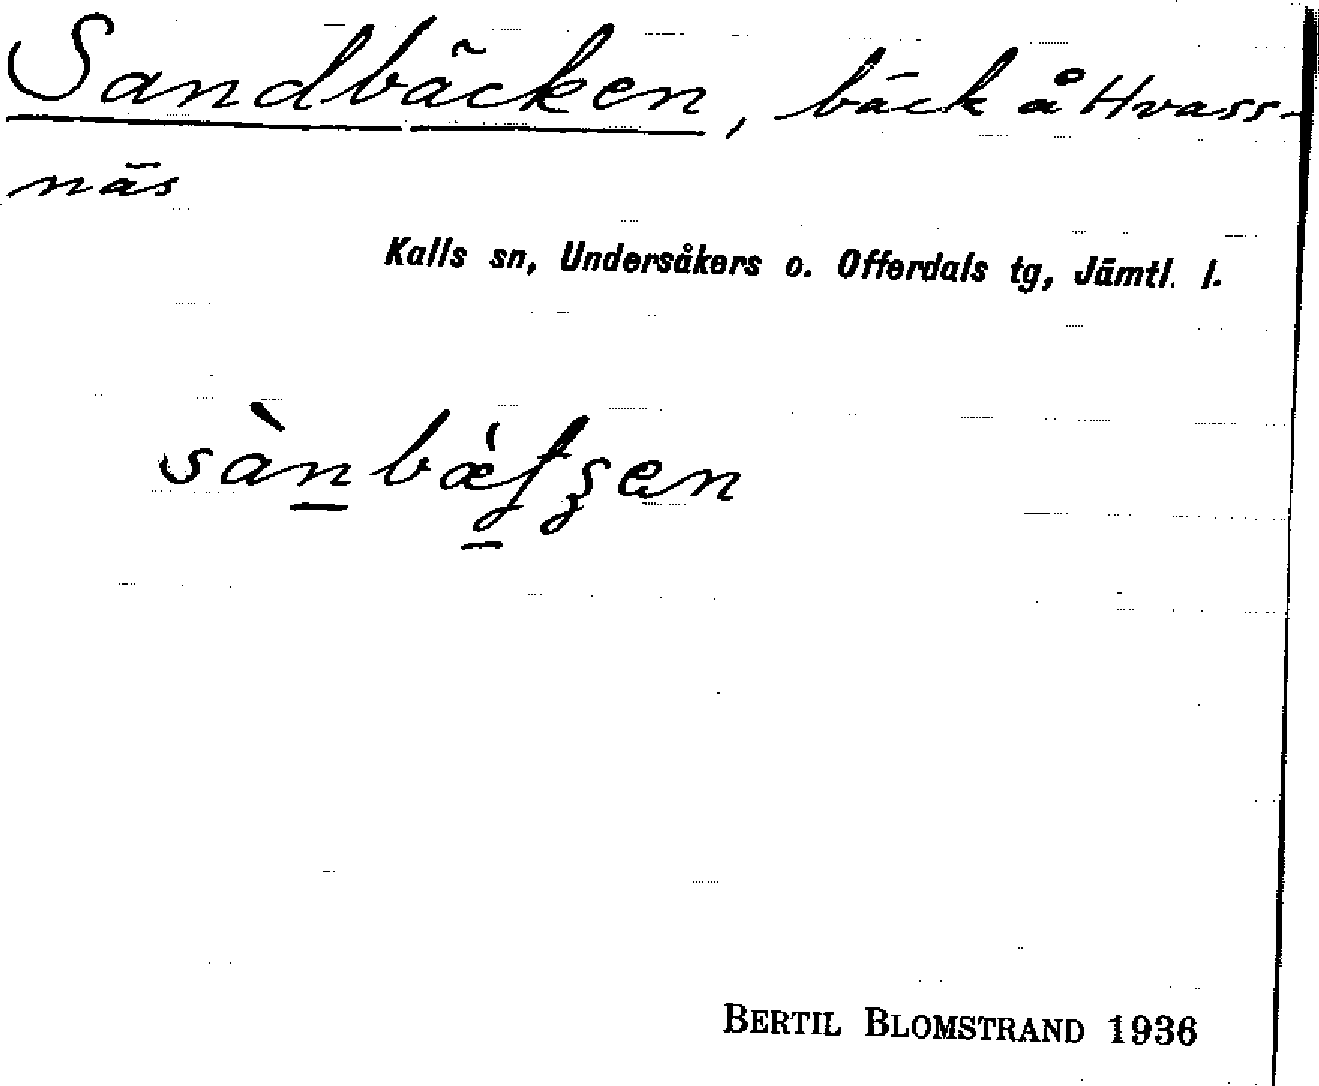 Sandbäcken, bäck å Hvass-
näs
Kalls sn, Undersåkers o. Offerdals tg, Jämtl. l.
BERTIL BLOMSTRAND 1936